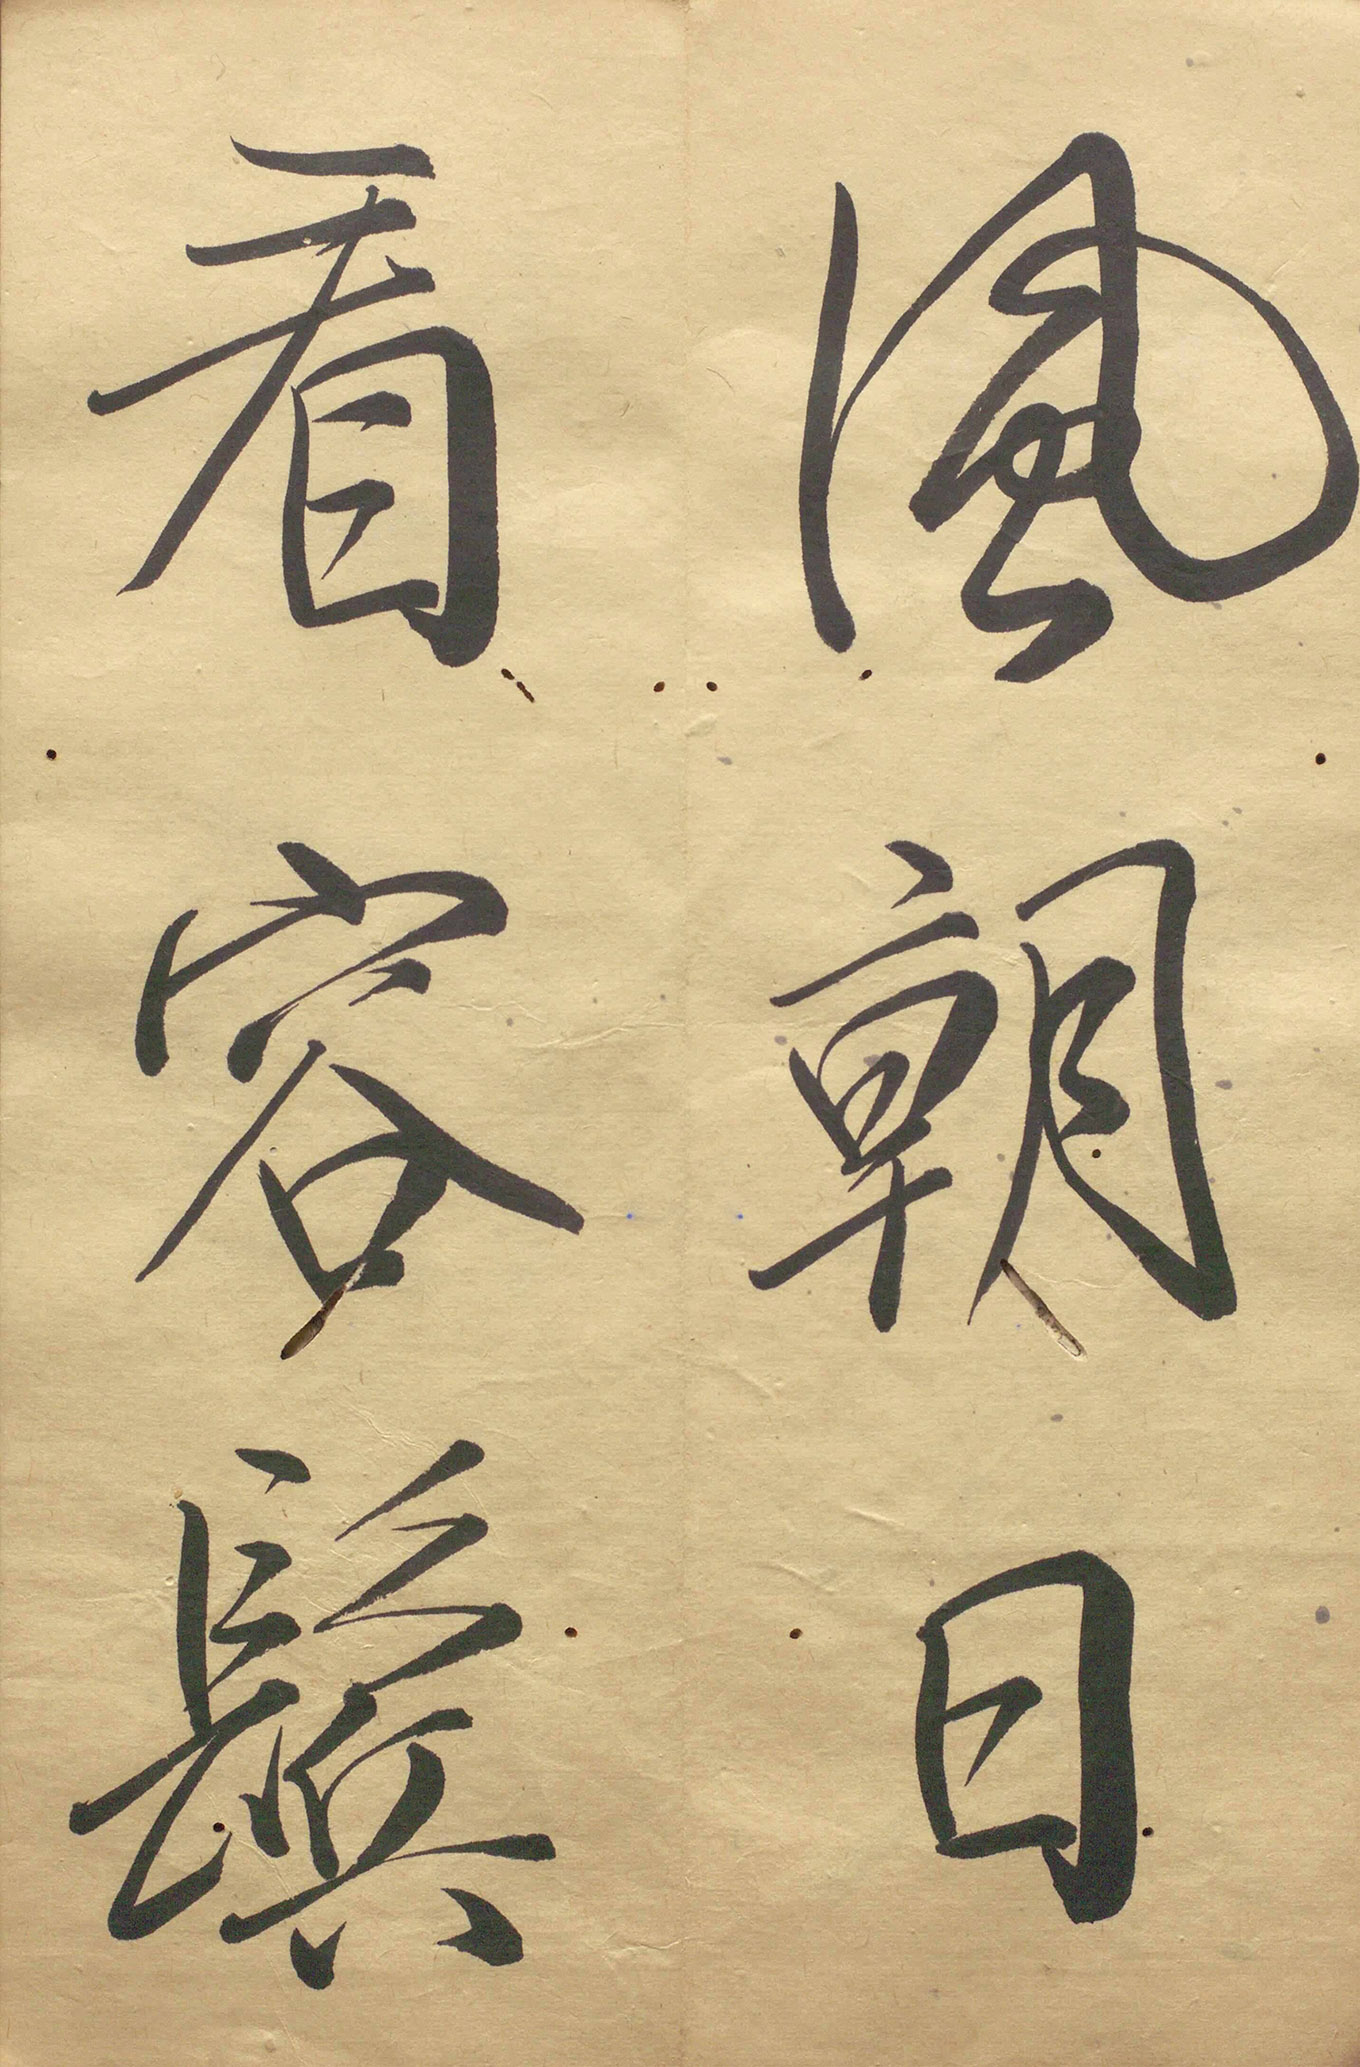 風朝日
看容鬢